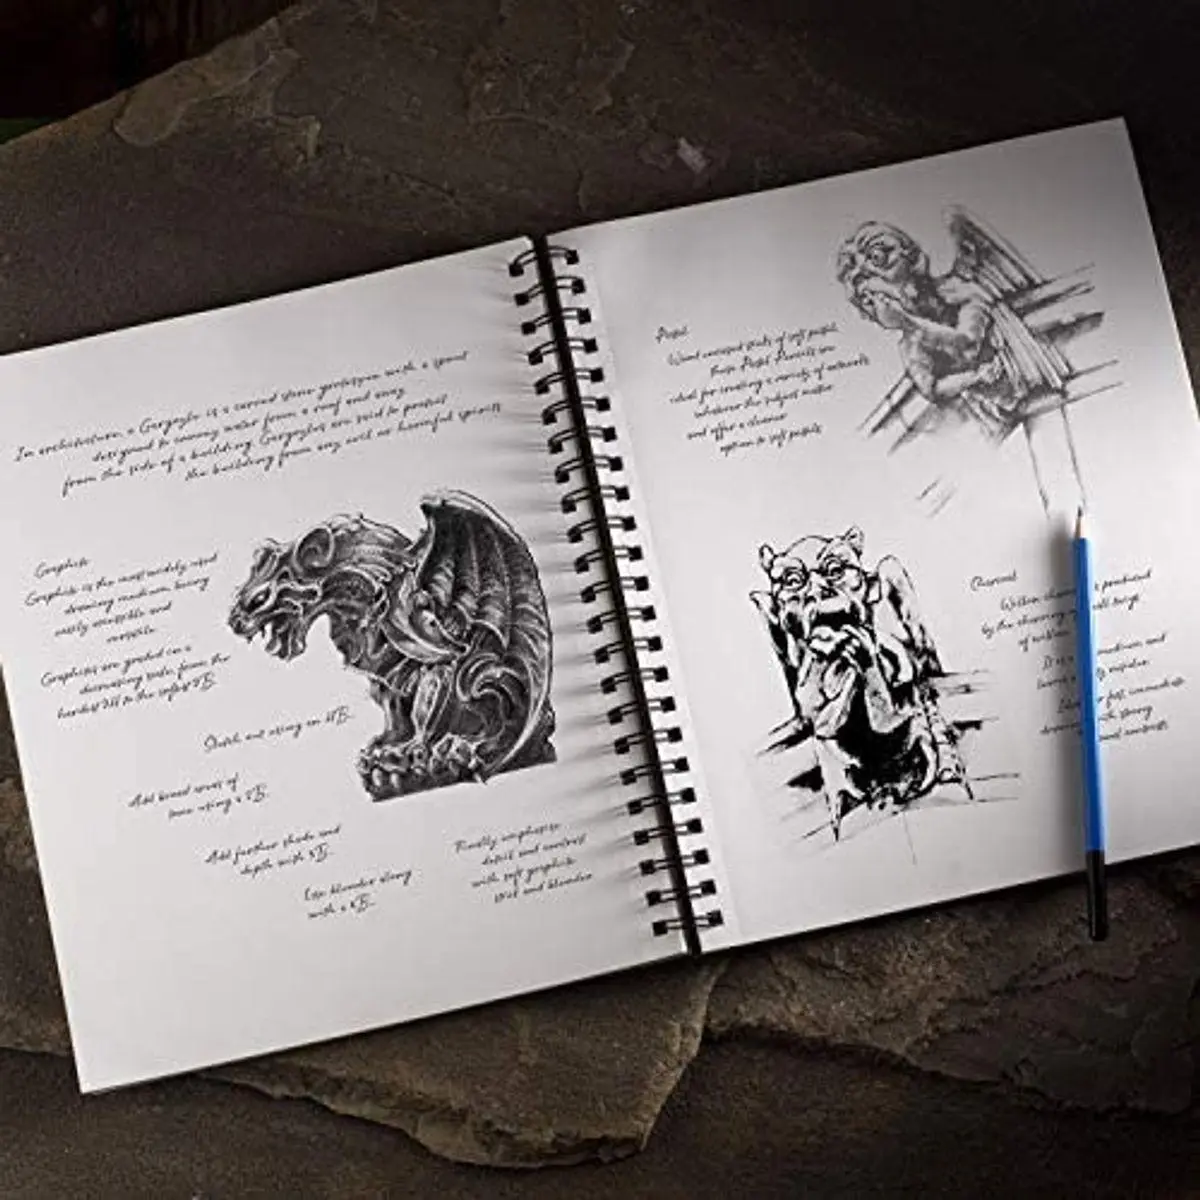 In architecture, a Gargoyle is a carved stone grotesque with a spout
designed to convey water from a roof and away
from the side of a building. Gargoyles are said to protect
the building from any evil or harmful spirits
Graphite
Graphite is the most widely used
drawing medium, being
easily accessible and
versatile.
Graphites are graded in a
decreasing scale from the
hardest to the softest
Sketch out using an HB.
Add broad areas of
tone using a
Add further shade and
depth with
Use blender along
with a
Finally emphasise
detail and contrast
with soft graphite
and blender
Pastel
Wood encased sticks of soft pastel,
these Pastel Pencils are
ideal for creating a variety of artworks
whatever the subject matter
and offer a cleaner
option to soft pastels
Charcoal
Willow produced
by the charring
of willow.
medium and
leaves
for fast, immediate
strong
contrasts